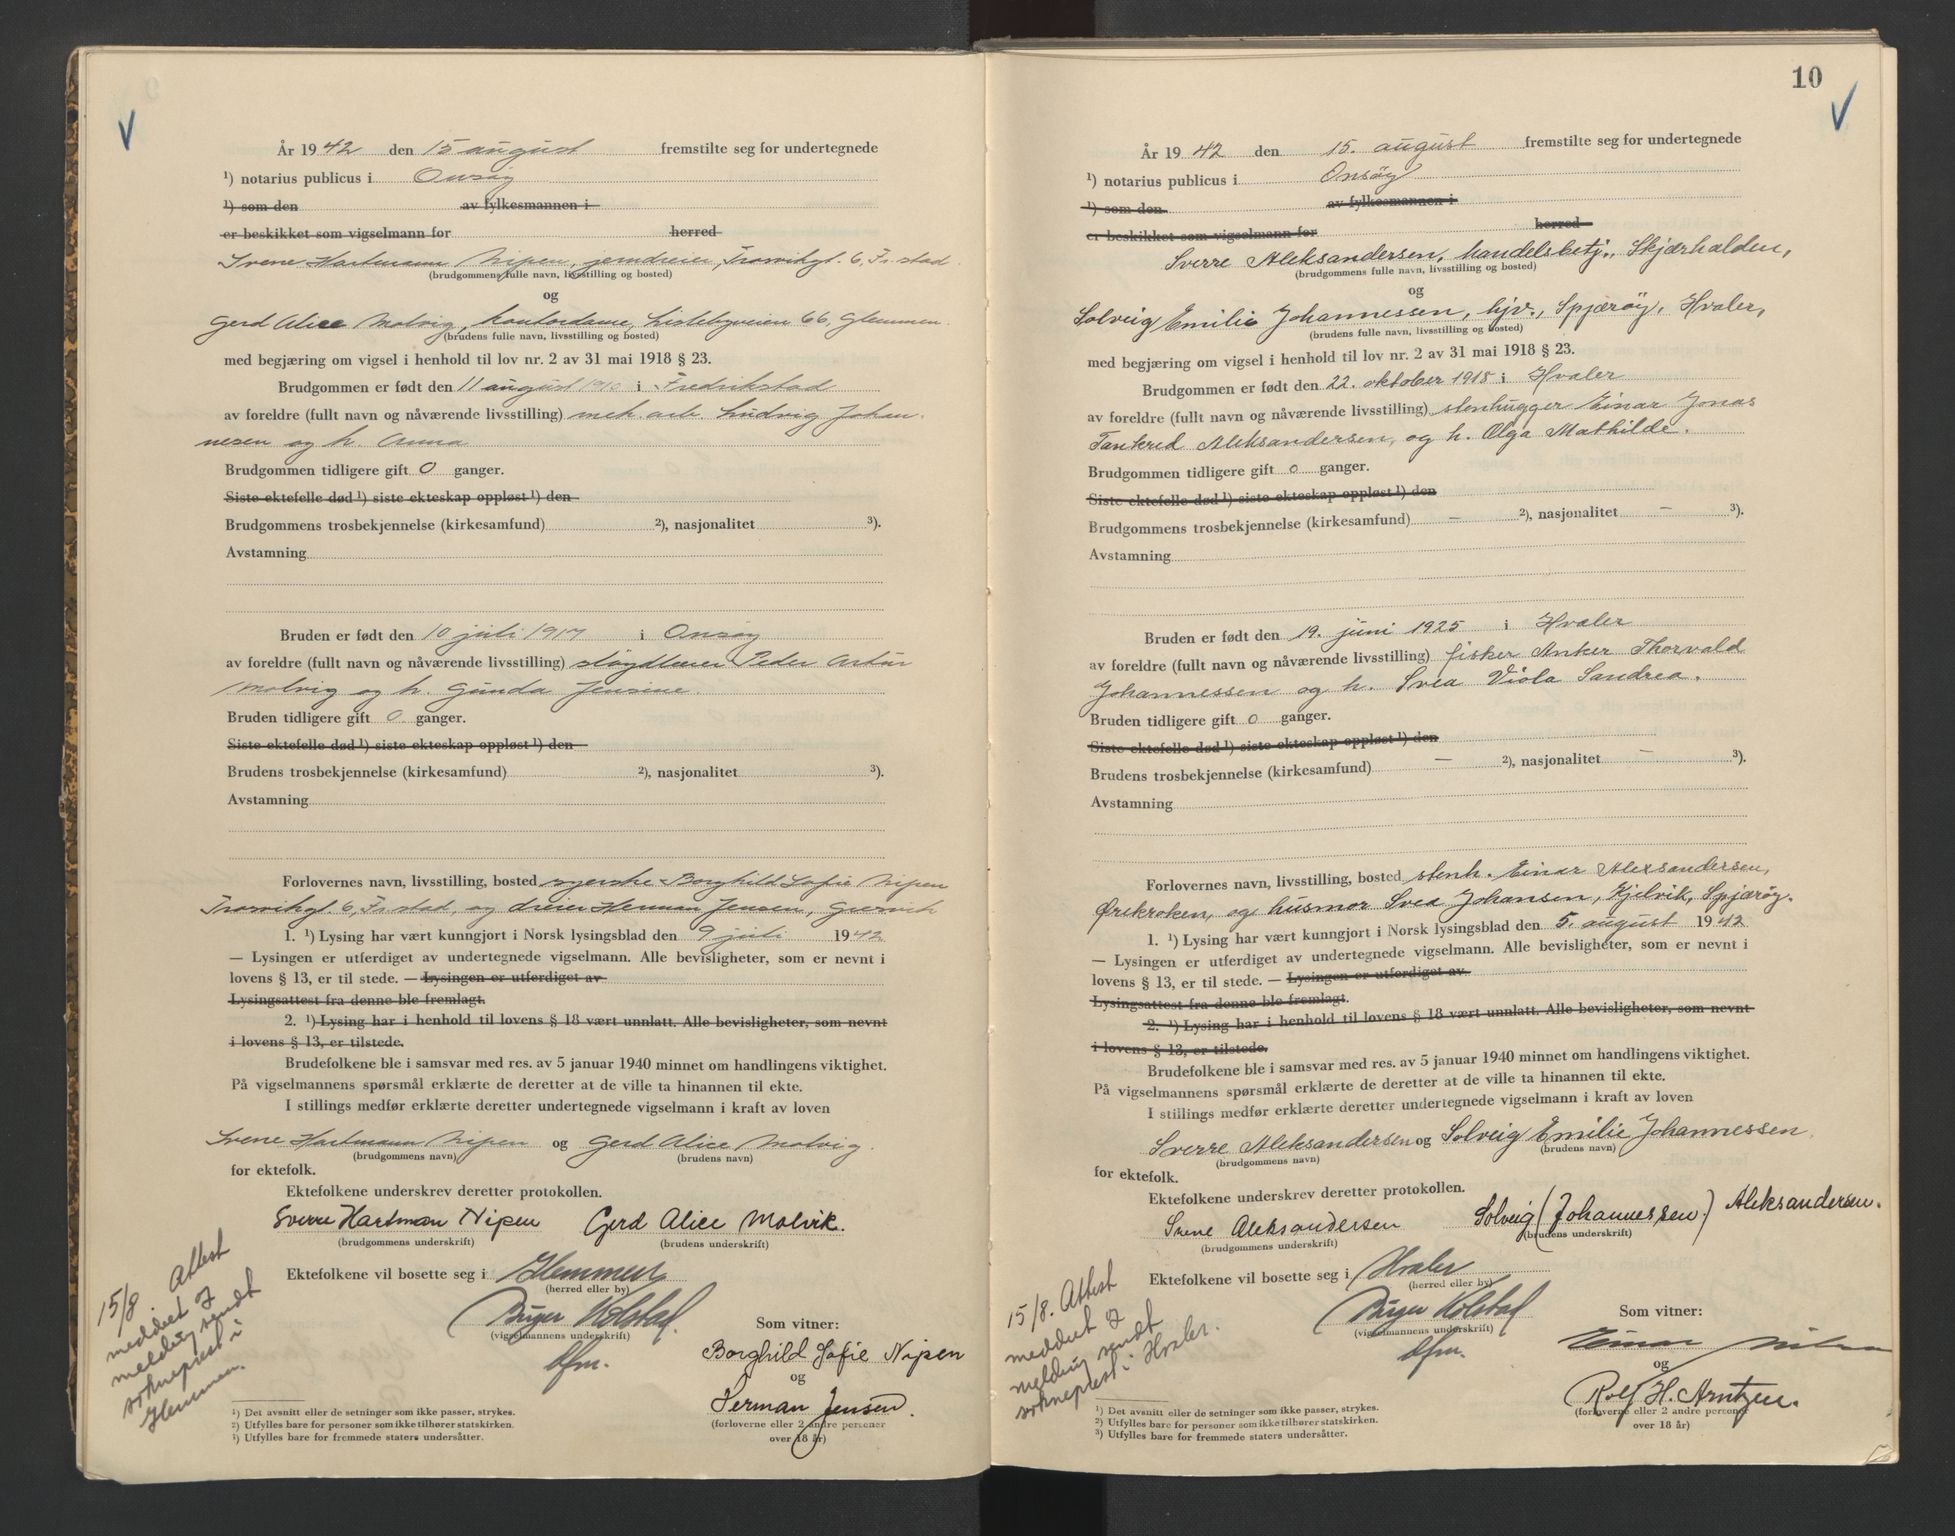 År 1942 den 15 august fremstilte seg for undertegnede
¹) notarius publicus i Onsøy
¹) som den av fylkesmannen i
er beskikket som vigselmann for herred
Sverre Hartmann Nipen, jerndreier, Trosvikgt. 6, Fr.stad.
(brudgommens fulle navn, livsstilling og bosted)
og
Gerd Alice Molvig, kontordame, Lislebyveien 66, Glemmen.
(brudens fulle navn, livsstilling og bosted)
med begjæring om vigsel i henhold til lov nr. 2 av 31 mai 1918 § 23.
Brudgommen er født den 11 august i Fredrikstad
av foreldre (fullt navn og nåværende livsstilling) mek. arb. Ludvig Johan-
nesen og h. Anna
Brudgommen tidligere gift 0 ganger.
Siste ektefelle død ¹) siste ekteskap oppløst ¹) den
Brudgommens trosbekjennelse (kirkesamfund) ²), nasjonalitet ³).
Avstamning
Bruden er født den 10 juli 1917 i Onsøy
av foreldre (fullt navn og nåværende livsstilling) sløydlærer Peder Artur
Molvig og h. Gunda Jensine.
Bruden tidligere gift 0 ganger.
Siste ektefelle død ¹) siste ekteskap oppløst ¹) den
Brudens trosbekjennelse (kirkesamfund) ²), nasjonalitet ³).
Avstamning
Forlovernes navn, livsstilling, bosted syerske Borghild Sofie Nipen
Trosvikgt. 6, Fr.stad, og dreier Herman Jensen,
1. ¹) Lysing har vært kunngjort i Norsk lysingsblad den 9 juli 1942
— Lysingen er utferdiget av undertegnede vigselmann. Alle bevisligheter, som er nevnt i
lovens § 13, er til stede. — Lysingen er utferdiget av
Lysingsattest fra denne ble fremlagt.
2. ¹) Lysing har i henhold til lovens § 18 vært unnlatt. Alle bevisligheter, som nevnt
i lovens § 13, er tilstede.
Brudefolkene ble i samsvar med res. av 5 januar 1940 minnet om handlingens viktighet.
På vigselmannens spørsmål erklærte de deretter at de ville ta hinannen til ekte.
I stillings medfør erklærte deretter undertegnede vigselmann i kraft av loven
Sverre Hartmann Nipen og Gerd Alice Molvig.
(brudgommens navn) (brudens navn)
for ektefolk.
Ektefolkene underskrev deretter protokollen.
Sverre Hartman Nipen Gerd Alice Molvik.
(brudgommens underskrift) (brudens underskrift)
Ektefolkene vil bosette seg i Glemmen
(herred eller by)
Birger Kolstad.
(vigselmannens underskrift)
dfm.
Som vitner:
Borghild Sofie Nipen
og
Herman Jensen.
(forloverne eller 2 andre personer
over 18 år)
15/8. Attest
meddelt og
melding sendt
sokneprest i
Glemmen.
¹) Det avsnitt eller de setninger som ikke passer, strykes.
²) Utfylles bare for personer som ikke tilhører statskirken.
³) Utfylles bare for fremmede staters undersåtter.
10
År 1942 den 15. august fremstilte seg for undertegnede
¹) notarius publicus i Onsöy
¹) som den av fylkesmannen i
er beskikket som vigselmann for herred
Sverre Aleksandersen, handelsbetj., Skjærhalden,
(brudgommens fulle navn, livsstilling og bosted)
og
Solveig Emilie Johannessen, hjv., Spjæröy, Hvaler,
(brudens fulle navn, livsstilling og bosted)
med begjæring om vigsel i henhold til lov nr. 2 av 31 mai 1918 § 23.
Brudgommen er født den 22. oktober 1918 i Hvaler
av foreldre (fullt navn og nåværende livsstilling) stenhugger Einar Jonas
Tankred Aleksandersen, og h. Olga Mathilde.
Brudgommen tidligere gift 0 ganger.
Siste ektefelle død ¹) siste ekteskap oppløst ¹) den
Brudgommens trosbekjennelse (kirkesamfund) — ²), nasjonalitet — ³).
Avstamning
Bruden er født den 19. juni 1925 i Hvaler
av foreldre (fullt navn og nåværende livsstilling) fisker Anker Thorvald
Johannessen og h. Svea Viola Sandrea.
Bruden tidligere gift 0 ganger.
Siste ektefelle død ¹) siste ekteskap oppløst ¹) den
Brudens trosbekjennelse (kirkesamfund) — ²), nasjonalitet — ³).
Avstamning
Forlovernes navn, livsstilling, bosted stenh. Einar Alexsandersen,
Ørekroken, og husmor Svea Johansen, Kjelvik, Spjæröy.
1. ¹) Lysing har vært kunngjort i Norsk lysingsblad den 5. august 1942
— Lysingen er utferdiget av undertegnede vigselmann. Alle bevisligheter, som er nevnt i
lovens § 13, er til stede. — Lysingen er utferdiget av
Lysingsattest fra denne ble fremlagt.
2. ¹) Lysing har i henhold til lovens § 18 vært unnlatt. Alle bevisligheter, som nevnt
i lovens § 13, er tilstede.
Brudefolkene ble i samsvar med res. av 5 januar 1940 minnet om handlingens viktighet.
På vigselmannens spørsmål erklærte de deretter at de ville ta hinannen til ekte.
I stillings medfør erklærte deretter undertegnede vigselmann i kraft av loven
Sverre Aleksandersen og Solveig Emilie Johannessen.
(brudgommens navn) (brudens navn)
for ektefolk.
Ektefolkene underskrev deretter protokollen.
Sverre Aleksandersen Solveig (Johannessen.) Aleksandersen.
(brudgommens underskrift) (brudens underskrift)
Ektefolkene vil bosette seg i Hvaler
(herred eller by)
Birger Kolstad
(vigselmannens underskrift)
dfm.
Som vitner:
Einar
og
Rolf H. Arntzen.
(forloverne eller 2 andre personer
over 18 år)
15/8. Attest
meddelt og
melding sendt
sokneprest i Hvaler.
¹) Det avsnitt eller de setninger som ikke passer, strykes.
²) Utfylles bare for personer som ikke tilhører statskirken.
³) Utfylles bare for fremmede staters undersåtter.